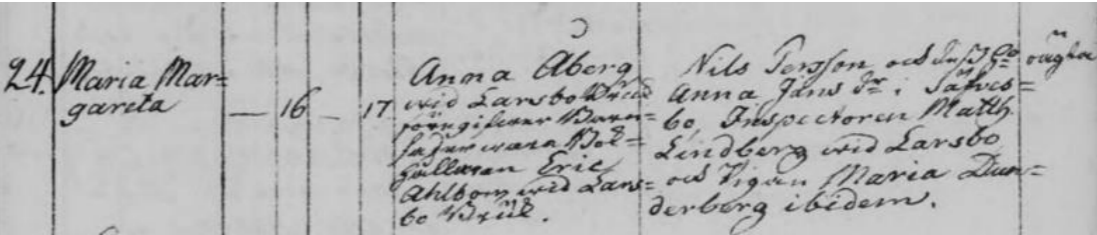 24. Maria Mar=
gareta — 16 — 17
Anna Åberg
wid Larsbo Bruk
föregifwer Barn=
fader wara Bok=
hållaren Eric
Ahlbom wid Lars=
bo Bruk.
Nils Persson och
Anna Jans Dr i Säfves=
bo, Inspectoren Matth.
Lindberg wid Larsbo
och Pigan Maria Dun=
derberg ibidem.
oägta